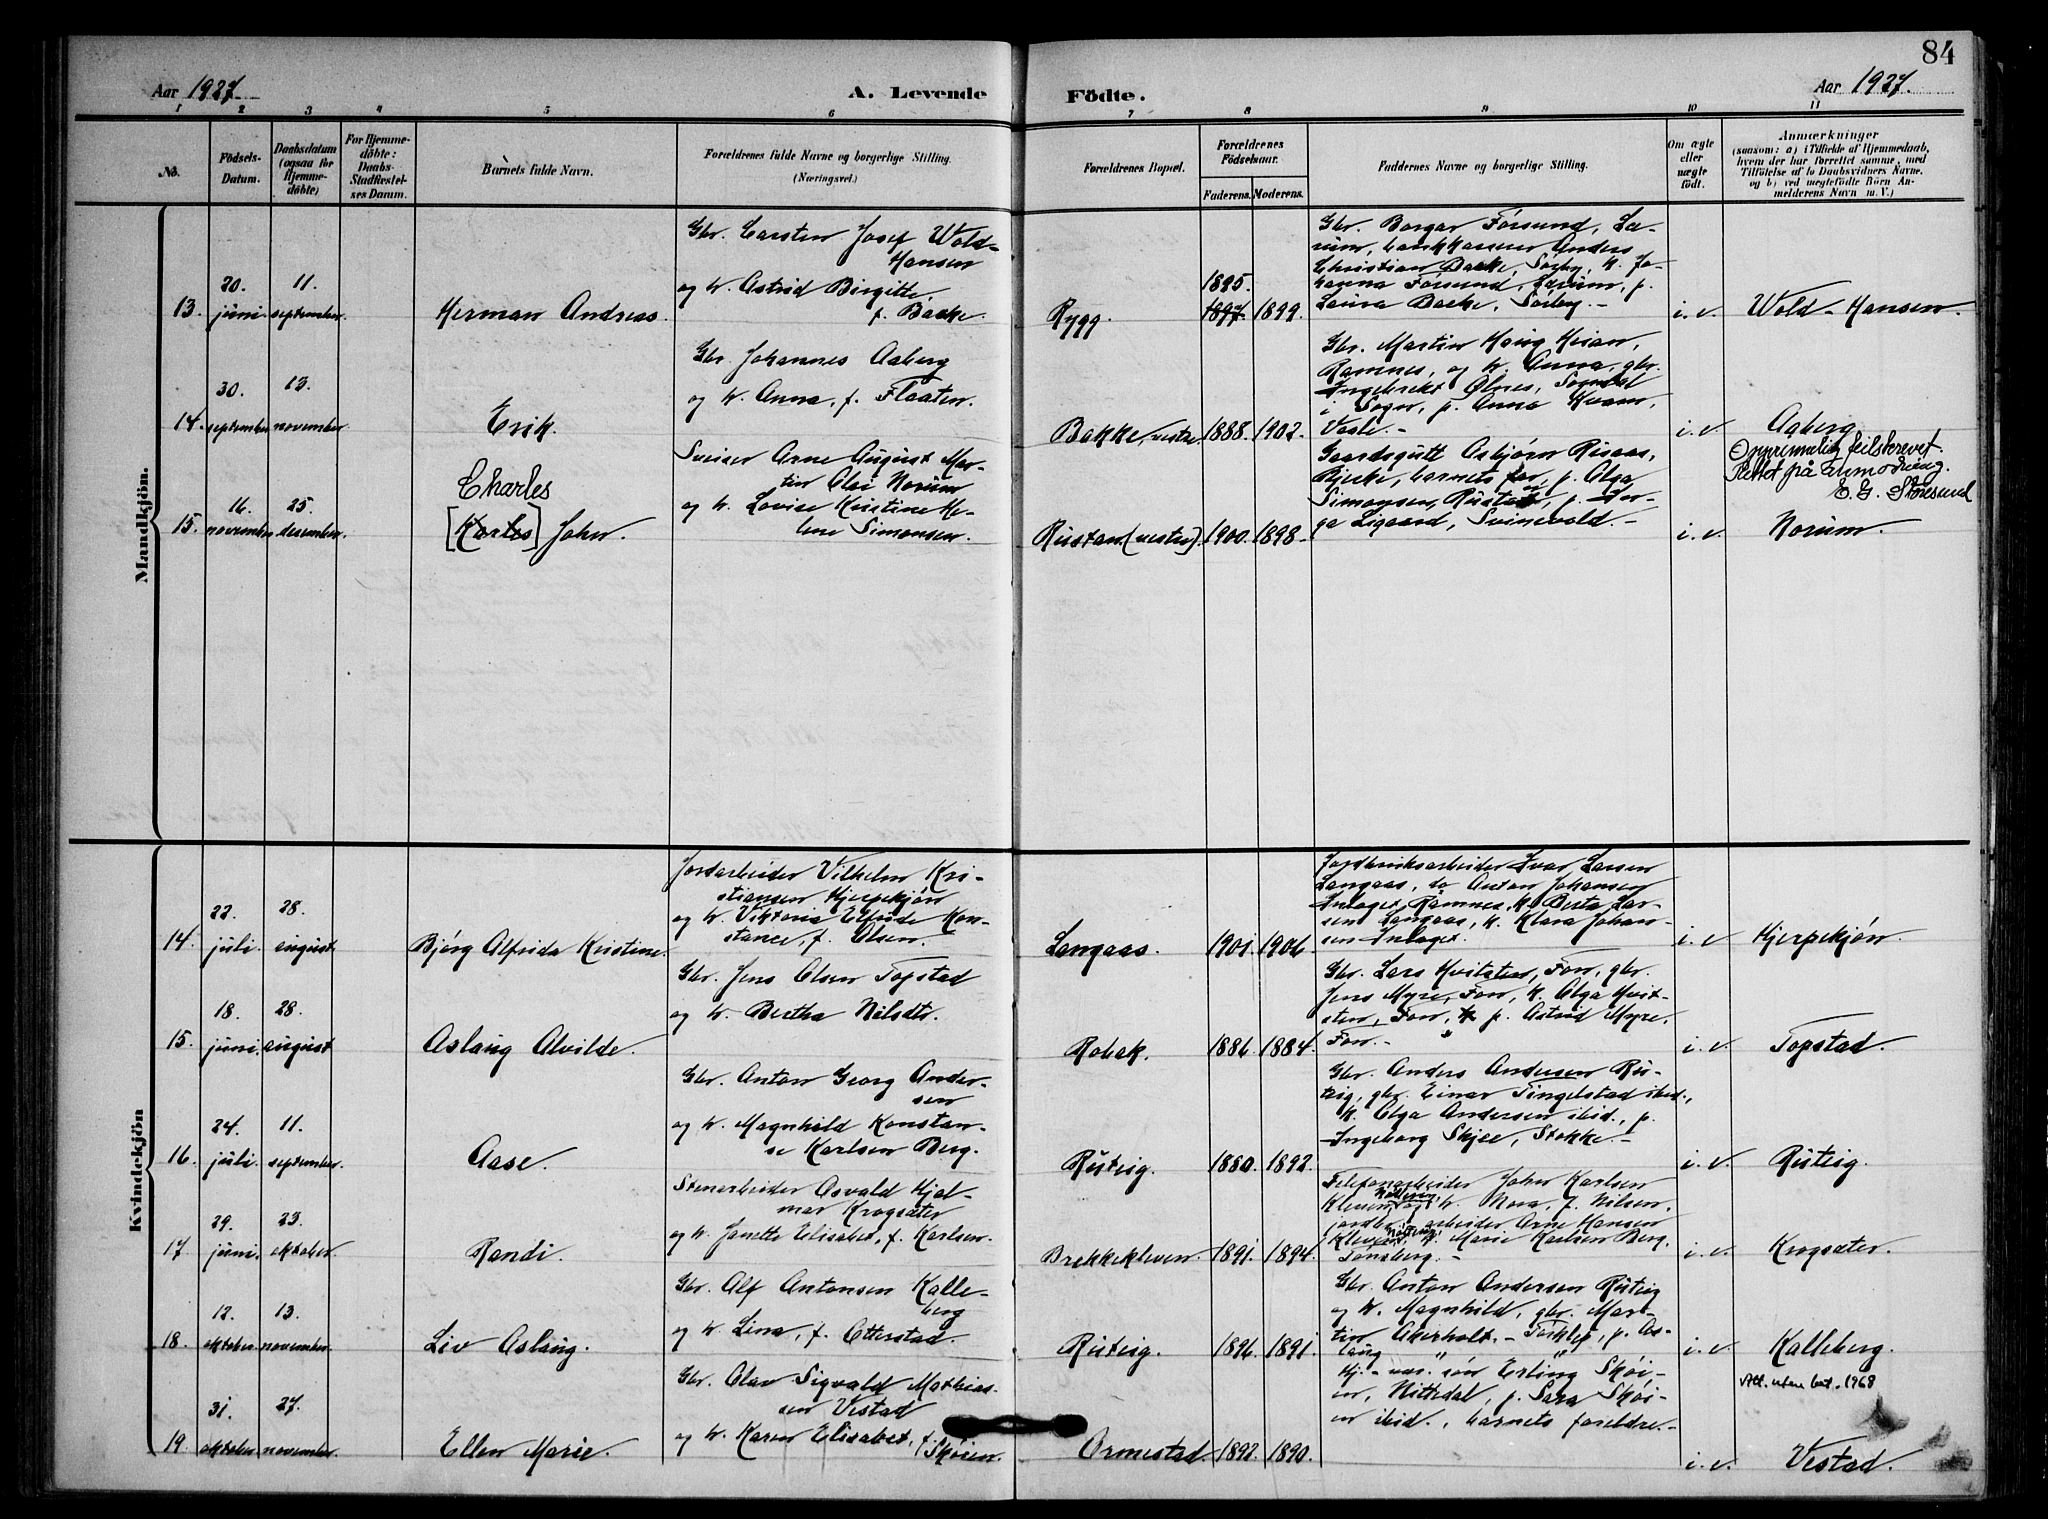 84
Aar 1927.
A. Levende
Födte.
Aar 1927.
1 2 3 4 5 6 7 8 9 10 11
No.
Födsels-
Datum.
Daabsdatum
(ogsaa for
Hjemme-
döbte)
For Hjemme-
döbte:
Daabs-
Stadfæstel-
ses Datum.
Barnets fulde Navn.
Forældrenes fulde Navne og borgerlige Stilling.
(Næringsvei.)
Forældrenes Bopæl.
Forældrenes
Födselsaar.
Faderens. Moderens.
Faddernes Navne og borgerlige Stilling.
Om ægte
eller
uægte
født.
Anmærkninger
(saasom: a) i Tilfælde af Hjemmedaab,
hvem der har forrettet samme, med
Tilföielse af to Daabsvidners Navne.
og b) ved uægtefödte Börn An-
melderens Navn m. V.)
Mandkjön.
13.
20.
juni
11.
september.
Herman Andreas.
Gbr. Carsten Josef Wold-
Hansen
og h. Astrid Birgitte,
f. Bakke.
Rygg.
1895.
1897 1899.
Gbr. Borgar Forsund, Læ-
rum, bankkasserer Anders
Christian Bakke, Sörby, k. Jo-
hanna Forsund, Lærum, p.
Laura Bakke, Sörby. -
i. e.
Wold-Hansen.
14.
30.
september
13.
november.
Erik.
Gbr. Johannes Aaberg
og h. Anna, f. Flaaten.
Bakke, vestre.
1888. 1902.
Gbr. Martin Haug Hvian,
Ramnes, og h. Anna, gbr.
Ingebrikt Ølnes, Sogndal
i Sogn, p. Anna Kvam,
Vasle. -
i. e.
Aaberg.
15.
16.
november
25.
desember.
Charles
[Karles] John.
Sveiser Arne August Mar-
tin Olai Norum
og h. Lovise Kristine He-
lene Simonsen.
Rustan (vestre).
1900. 1898.
Gaardsgutt Asbjørn Risaas,
Bjerke, barnets far, p. Olga
Simonsen, Rustan, p. In-
ga Ligaard, Svinevold. -
i. e.
Opprinnelig feilskrevet.
Rettet på anmodning.
E. G. Storesund
Norum.
Kvindekjön
14.
22.
juli.
28.
august
Bjørg Alfrida Kristine.
Jordarbeider Vilhelm Kri-
stiansen Hjerpekjøn
og h. Viktoria Elfride Kon-
stance, f. Olsen.
Langaas.
1901. 1906.
Jordbruksarbeider Ivar Larsen
Langaas, do Anton Johansen
Inlaget, Ramnes, k. Berta Lar-
sen Langaas, k. Klara Johan-
sen Inlaget.
i. e.
Hjerpekjøn.
15.
18.
juni.
28.
august
Aslaug Alvilde.
Gbr. Jens Olsen Topstad
og h. Bertha Nilsdtr.
Robek.
1886. 1884.
Gbr. Lars Hvitsten, Fon, gbr.
Jens Myre, Fon, k. Olga Hvit-
sten, Fon, p. Astrid Myre,
Fon. -
i. e.
Topstad.
16.
24.
juli.
11.
september.
Aase.
Gbr. Anton Georg Ander-
sen
og h. Magnhild Konstan-
se Karlsen Berg.
Rustig.
1880. 1892.
Gbr. Anders Andersen Rus-
tig, gbr. Einar Tingelstad ibid.,
k. Olga Andersen ibid., p.
Ingeborg Skjee, Stokke. -
i. e.
Rustig.
17.
29.
juni.
23.
oktober.
Randi.
Stenarbeider Osvald Hjal-
mar Krogsæter
og h. Janette Elisabet, f. Karlsen.
Brekkekleven.
1891. 1894.
Telefonarbeider John Karlsen
Kleven, Nötterøy, og h. Nora, f. Nilsen,
jordbr. arbeider Arne Hansen
Kleven, Nötterøy, Marie Karlsen Berg,
Tønsberg. -
i. e.
Krogsæter.
18.
12.
oktober.
13.
november.
Liv Aslaug.
Gbr. Alf Antonsen Kalle-
berg
og h. Lina, f. Otterstad.
Rustig.
1896. 1891.
Gbr. Anton Andersen Rustig
og h. Magnhild, gbr. Mar-
tin Akerholt. - Torklep, p. As-
laug " "
i. e.
Kalleberg.
19.
31.
oktober.
27.
november.
Ellen Marie.
Gbr. Olav Sigvald Mathias-
sen Vestad
og h. Karen Elisabet, f.
Skøien.
Ormestad.
1892. 1890.
Hj. - vær. sön Erling Skøi-
en, Nittedal, p. Sara Skøi-
en ibid., barnets foreldre. -
i. e.
Att. uten bet. 1968
Vestad.